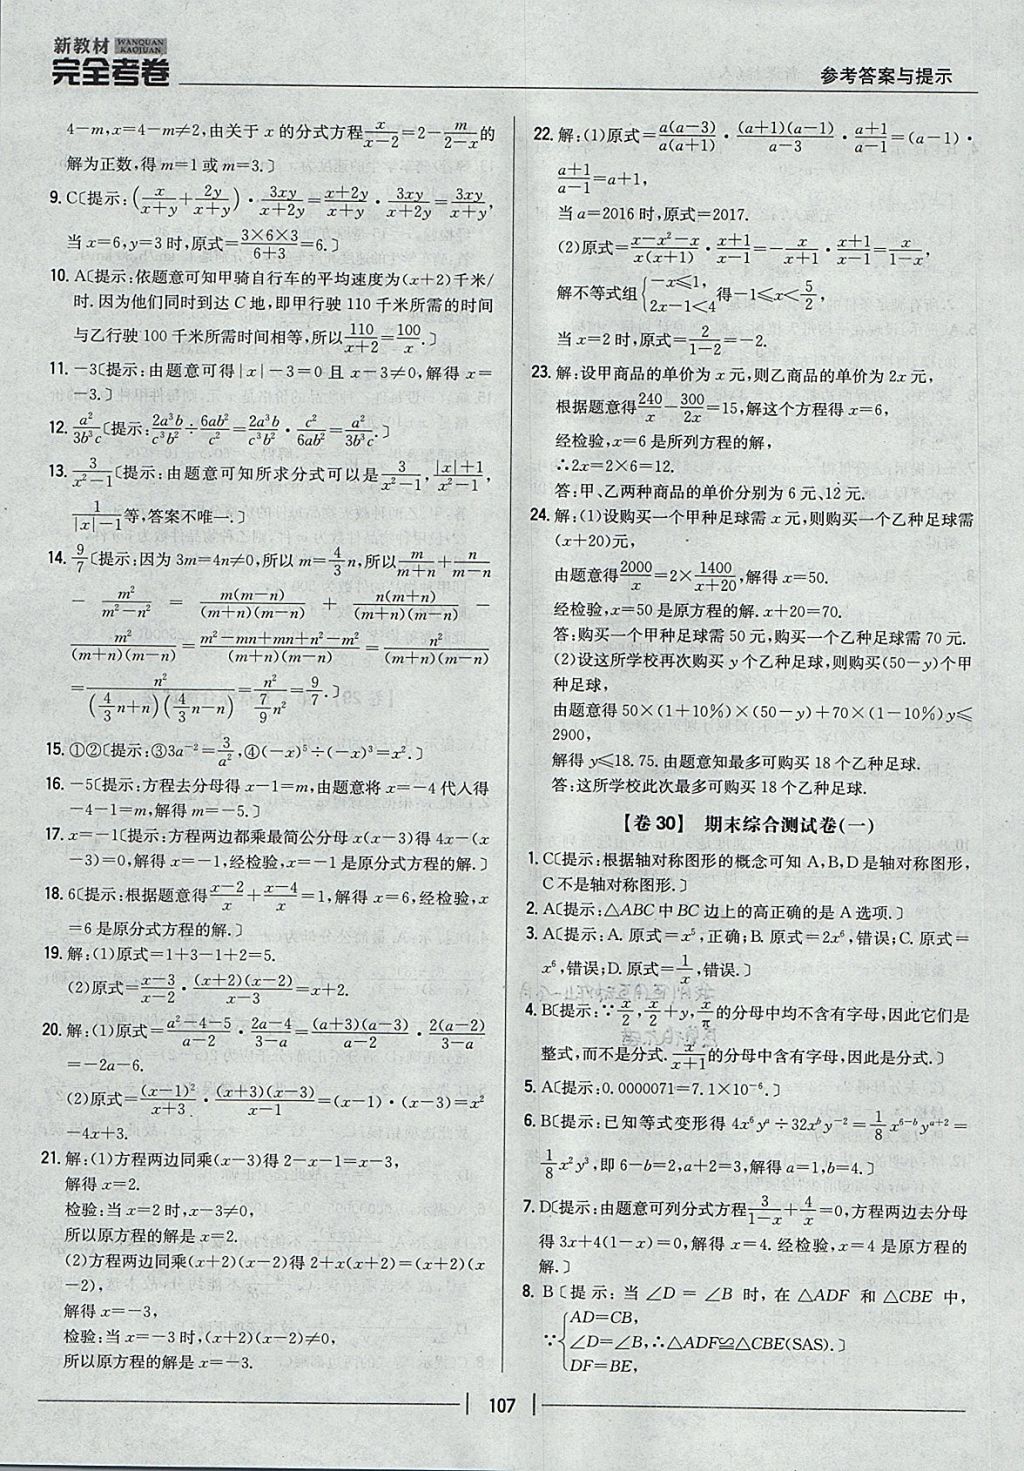 新教材 WANQUAN KAOJUAN
完全考卷
参考答案与提示
4-m,x=4-m≠2,由关于 x 的分式方程x/(x-2)=2-m/(2-x)的
解为正数,得 m=1 或 m=3.〕
9. C〔提示:(x/(x+y)+2y/(x+y))·3xy/(x+2y)=(x+2y)/(x+y)·3xy/(x+2y)=3xy/(x+y),
当 x=6,y=3 时,原式=(3×6×3)/(6+3)=6.〕
10. A〔提示:依题意可知甲骑自行车的平均速度为(x+2)千米/
时. 因为他们同时到达 C 地,即甲行驶 110 千米所需的时间
与乙行驶 100 千米所需时间相等,所以110/(x+2)=100/x.〕
11. -3〔提示:由题意可得|x|-3=0 且 x-3≠0,解得 x=
-3.〕
12. a²/(3b³c)〔提示:2a³b/(c³b²)÷6ab²/c²=2a³b/(c³b²)·c²/(6ab²)=a²/(3b³c).〕
13. 3/(x²-1)〔提示:由题意可知所求分式可以是3/(x²-1),(|x|+1)/(x²-1),
1/(|x|-1)等,答案不唯一.〕
14. 9/7〔提示:因为 3m=4n≠0,所以 m=4/3n,所以m/(m+n)+n/(m-n)
-m²/(m²-n²)=m(m-n)/((m+n)(m-n))+n(m+n)/((m+n)(m-n))-
m²/((m+n)(m-n))=(m²-mn+mn+n²-m²)/((m+n)(m-n))=n²/((m+n)(m-n))
=n²/((4/3n+n)(4/3n-n))=n²/(7/9n²)=9/7.〕
15. ①②〔提示:③3a⁻²=3/a²,④(-x)⁵÷(-x)³=x².〕
16. -5〔提示:方程去分母得 x-1=m,由题意将 x=-4 代人得
-4-1=m,解得 m=-5.〕
17. x=-1〔提示:方程两边都乘最简公分母 x(x-3)得 4x-(x
-3)=0,解得 x=-1,经检验,x=-1 是原分式方程的解.〕
18. 6〔提示:根据题意得(x-2)/x+(x-4)/x=1,解得 x=6,经检验,x
=6 是原分式方程的解.〕
19. 解:(1)原式=1+3-1+2=5.
(2)原式=(x-3)/(x-2)·((x+2)(x-2))/(x-3)=x+2.
20. 解:(1)原式=(a²-4-5)/(a-2)·(2a-4)/(3-a)=((a+3)(a-3))/(a-2)·(2(a-2))/(3-a)
=-2a-6.
(2)原式=(x-1)²/(x+3)·((x+3)(x-3))/(x-1)=(x-1)·(x-3)=x²
-4x+3.
21. 解:(1)方程两边同乘(x-3)得 2-x-1=x-3,
解得 x=2.
检验:当 x=2 时,x-3≠0,
所以原方程的解是 x=2.
(2)方程两边同乘(x+2)(x-2)得 2+x(x+2)=(x+2)(x
-2),
解得 x=-3,
检验:当 x=-3 时,(x+2)(x-2)≠0,
所以原方程的解是 x=-3.
22. 解:(1)原式=a(a-3)/(a(a+1))·((a+1)(a-1))/(a-3)·(a+1)/(a-1)=(a-1)·
(a+1)/(a-1)=a+1,
当 a=2016 时,原式=2017.
(2)原式=(x-x²-x)/(x(x+1))·(x+1)/(x-1)=-x/(x+1)·(x+1)/(x-1)=x/(1-x),
解不等式组{-x≤1, 2x-1<4 得-1≤x<5/2,
当 x=2 时,原式=2/(1-2)=-2.
23. 解:设甲商品的单价为 x 元,则乙商品的单价为 2x 元,
根据题意得240/x-300/2x=15,解这个方程得 x=6,
经检验,x=6 是所列方程的解,
∴2x=2×6=12.
答:甲、乙两种商品的单价分别为 6 元、12 元.
24. 解:(1)设购买一个甲种足球需 x 元,则购买一个乙种足球需
(x+20)元,
由题意得2000/x=2×1400/(x+20),解得 x=50.
经检验,x=50 是原方程的解. x+20=70.
答:购买一个甲种足球需 50 元,购买一个乙种足球需 70 元.
(2)设这所学校再次购买 y 个乙种足球,则购买(50-y)个甲
种足球,
由题意得 50×(1+10%)×(50-y)+70×(1-10%)y≤
2900,
解得 y≤18.75. 由题意知最多可购买 18 个乙种足球.
答:这所学校此次最多可购买 18 个乙种足球.
【卷 30】 期末综合测试卷(一)
1. C〔提示:根据轴对称图形的概念可知 A,B,D 是轴对称图形,
C 不是轴对称图形.〕
2. A〔提示:△ABC 中 BC 边上的高正确的是 A 选项.〕
3. A〔提示:A. 原式=x⁵,正确;B. 原式=2x⁶,错误;C. 原式=
x⁶,错误;D. 原式=1/x,错误.〕
4. B〔提示:∵x/2,x/2+y,x/π的分母中均不含有字母,因此它们是
整式,而不是分式. x/(x+1)的分母中含有字母,因此是分式.〕
5. A〔提示:0.0000071=7.1×10⁻⁶.〕
6. B〔提示:已知等式变形得 4x⁶yᵃ÷32xᵇy⁻²=1/8x⁶⁻ᵇyᵃ⁺²=
1/8x²y³,即 6-b=2,a+2=3,解得 a=1,b=4.〕
7. D〔提示:由题意可列分式方程3/(1-x)+4/x=0,方程两边去分母
得 3x+4(1-x)=0,解得 x=4. 经检验,x=4 是原方程的
解.〕
8. B〔提示:当 ∠D = ∠B 时,在 △ADF 和 △CBE 中,
∵{AD=CB,
∠D=∠B,∴△ADF≌△CBE(SAS).〕
DF=BE,
107